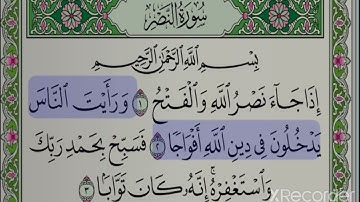 سُورَةُ النَّصْرِ
بِسْمِ ٱللَّهِ ٱلرَّحْمَٰنِ ٱلرَّحِيمِ
إِذَا جَآءَ نَصْرُ ٱللَّهِ وَٱلْفَتْحُ ١ وَرَأَيْتَ ٱلنَّاسَ
يَدْخُلُونَ فِى دِينِ ٱللَّهِ أَفْوَاجًا ٢ فَسَبِّحْ بِحَمْدِ رَبِّكَ
وَٱسْتَغْفِرْهُ ۚ إِنَّهُۥ كَانَ تَوَّابًۢا ٣
XRecorder